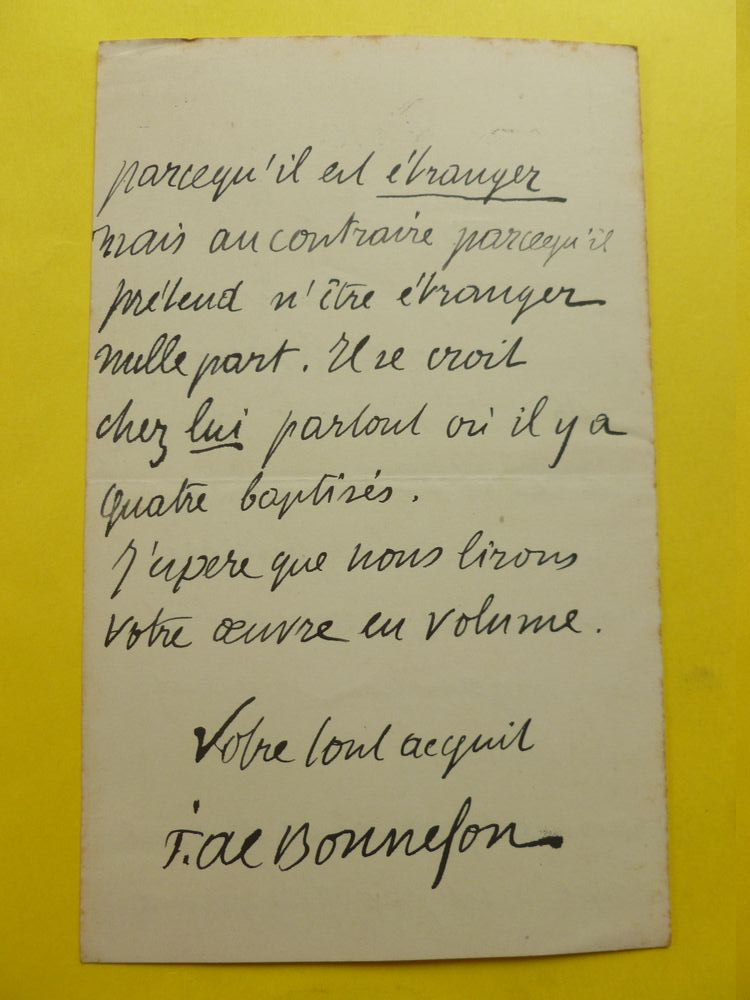 parcequ'il est étranger
mais au contraire parcequ'il
prétend n'être étranger
nulle part. Il se croit
chez lui partout où il y a
quatre baptisés.
J'espere que nous lirons
votre œuvre en volume.
Votre tout acquit
J. de Bonnefon